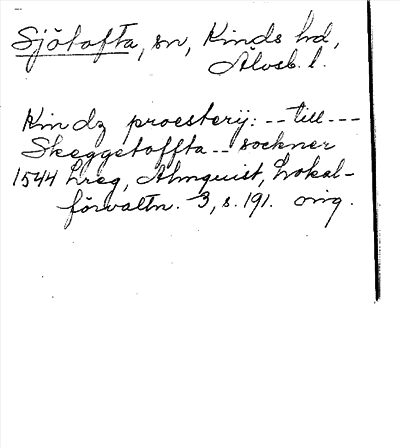 Sjötofta, sn, Kinds hd,
Älvsb. l.
Kindz proesterij: -- till ---
Skeggetoffta -- sockner
1544 Lreg, Almquist, Lokal-
förvaltn. 3, s. 191. orig.